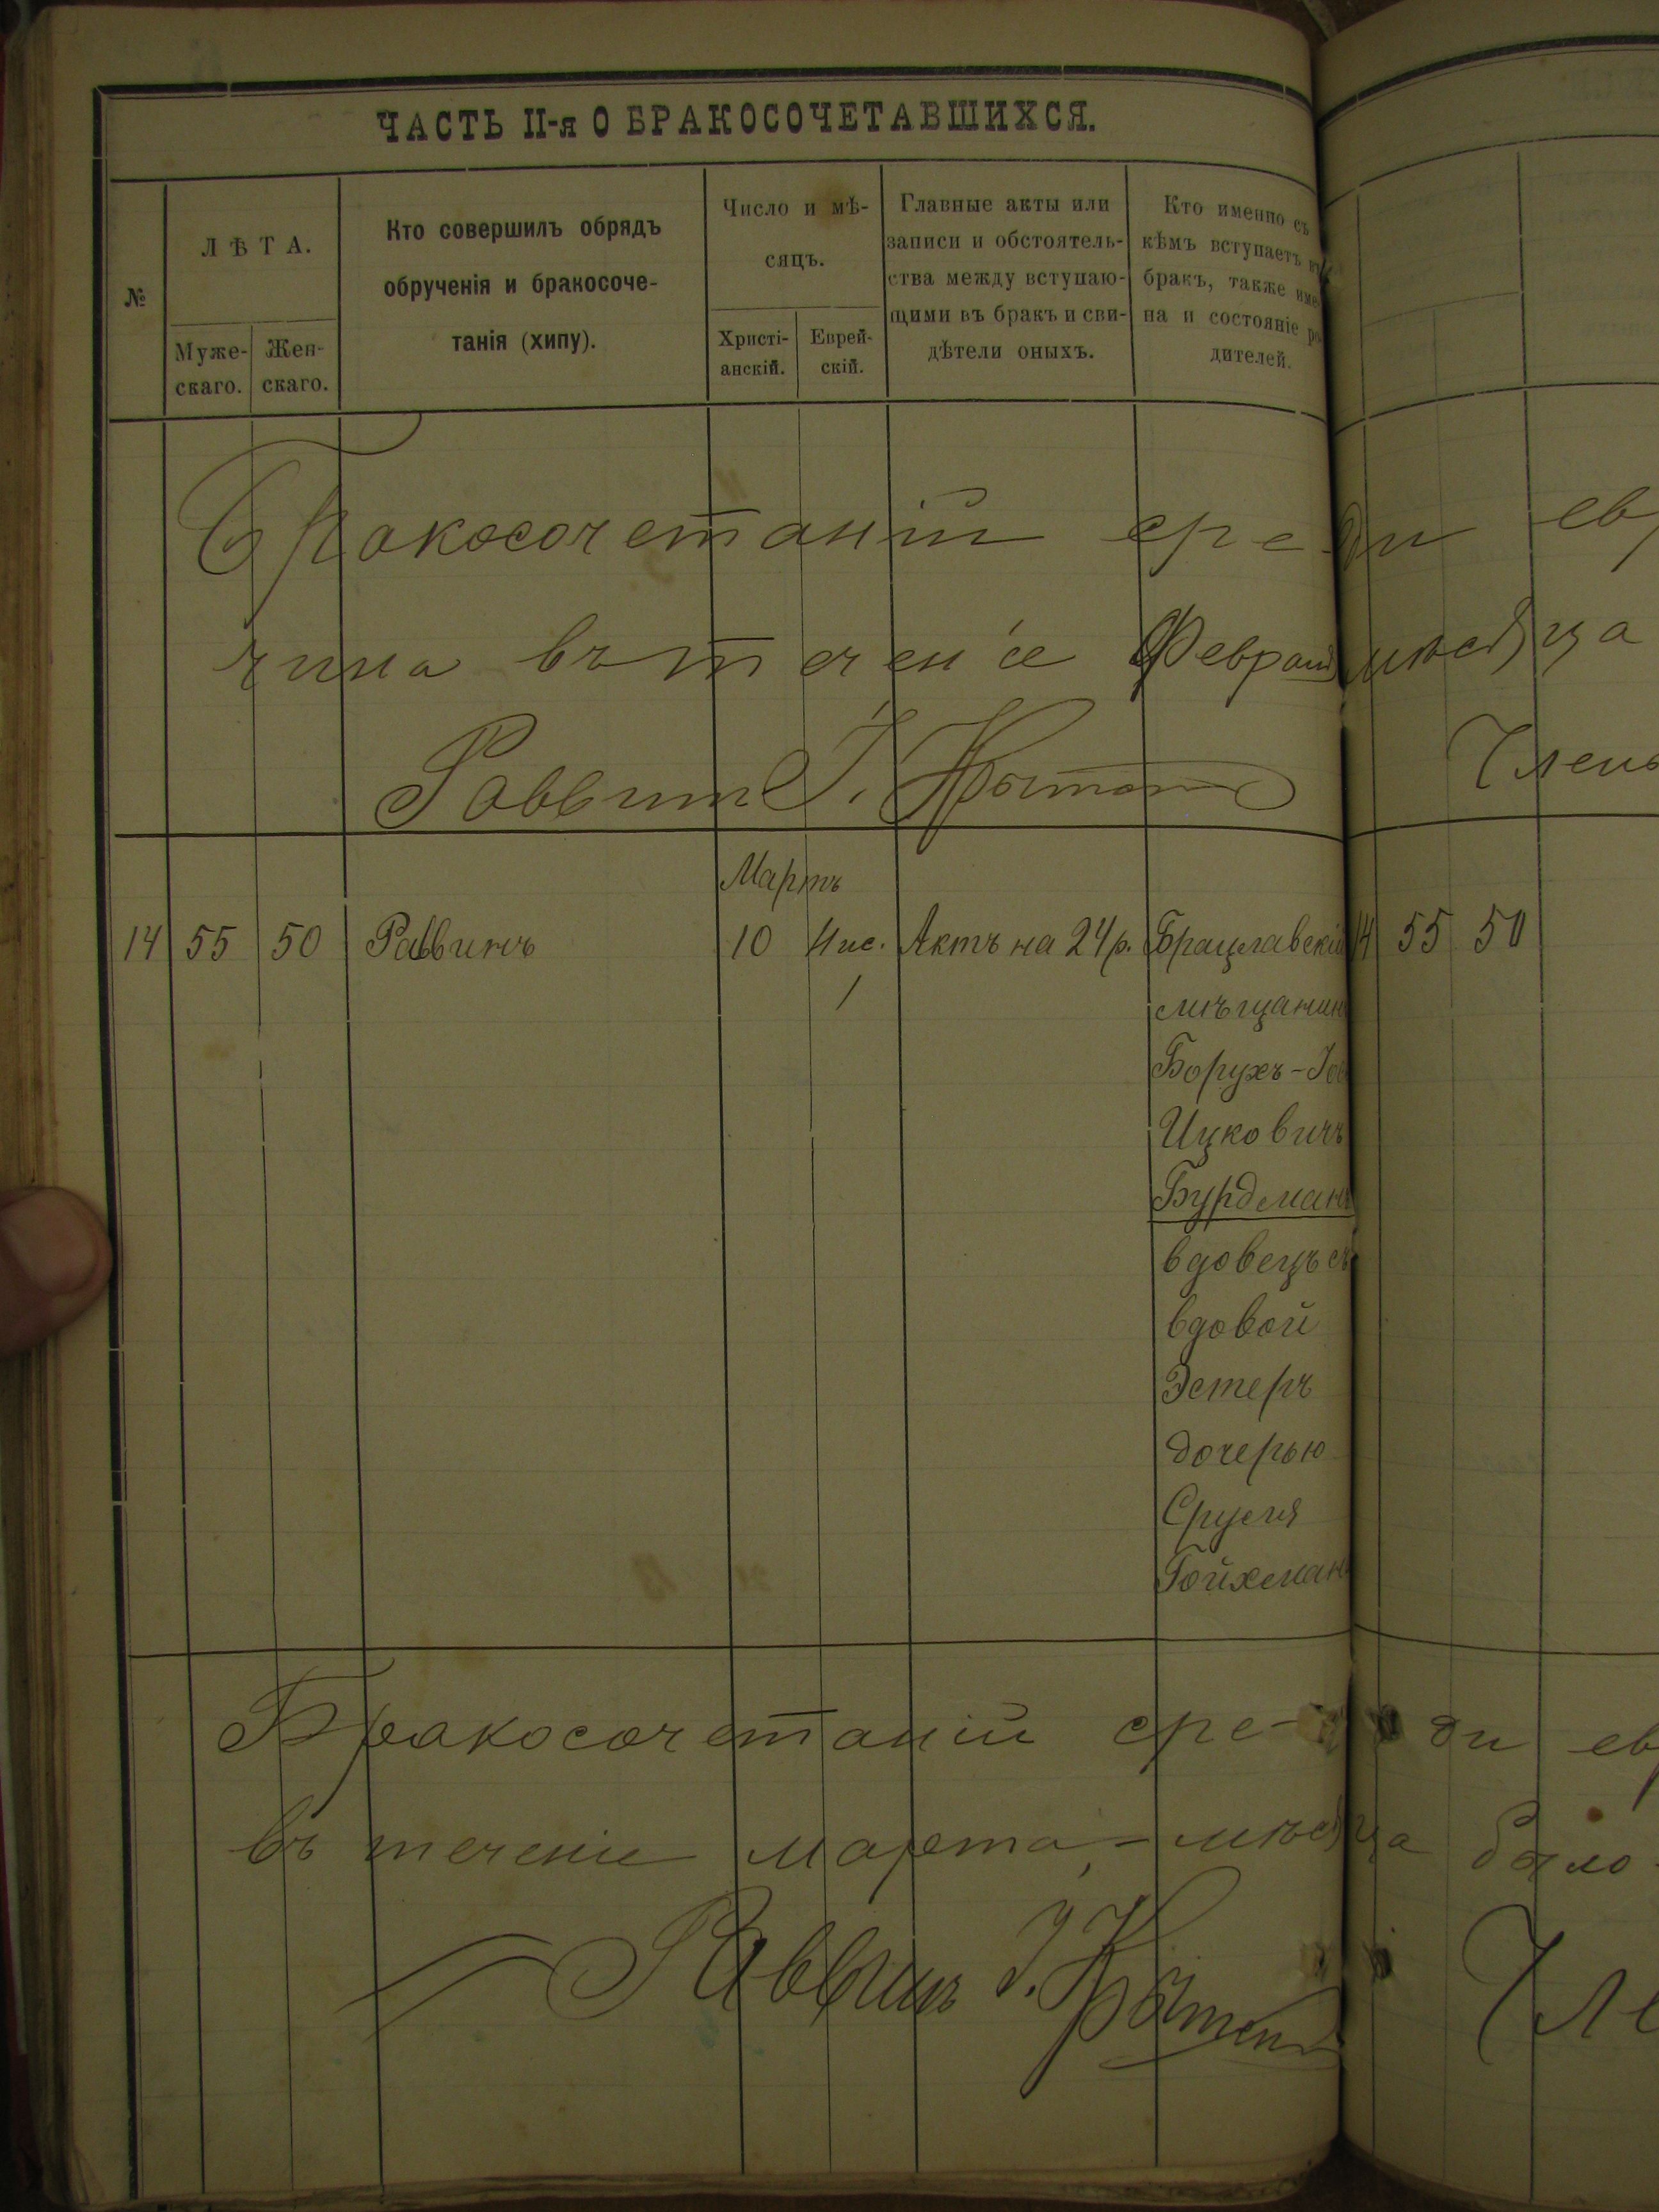 ЧАСТЬ II-я О БРАКОСОЧЕТАВШИХСЯ.
№
ЛѢТА.
Муже-
скаго.
Жен-
скаго.
Кто совершилъ обрядъ
обрученія и бракосоче-
танія (хипу).
Число и мѣ-
сяцъ.
Христі-
анскій.
Еврей-
скій.
Главные акты или
записи и обстоятель-
ства между вступаю-
щими въ бракъ и сви-
дѣтели оныхъ.
Кто именно съ
кѣмъ вступаетъ въ
бракъ, также име-
на и состояніе ро-
дителей.
Бракосочетаній среди ев
въ теченіе Февраля мѣсяца
Раввинъ І.
Член
Мартъ
14 55 50 Раввинъ 10 Нис. Актъ на 24 р. Брацлавскій 14 55 50
1 мѣщанинъ
Борухъ-
Ицковичъ
Бурдманъ
вдовецъ съ
вдовой
Эстеръ
дочерью
Сруля
Гойхман
Бракосочетаній сре-ди ев
въ теченіе марта-мѣсяца было
Раввинъ І.
Чле